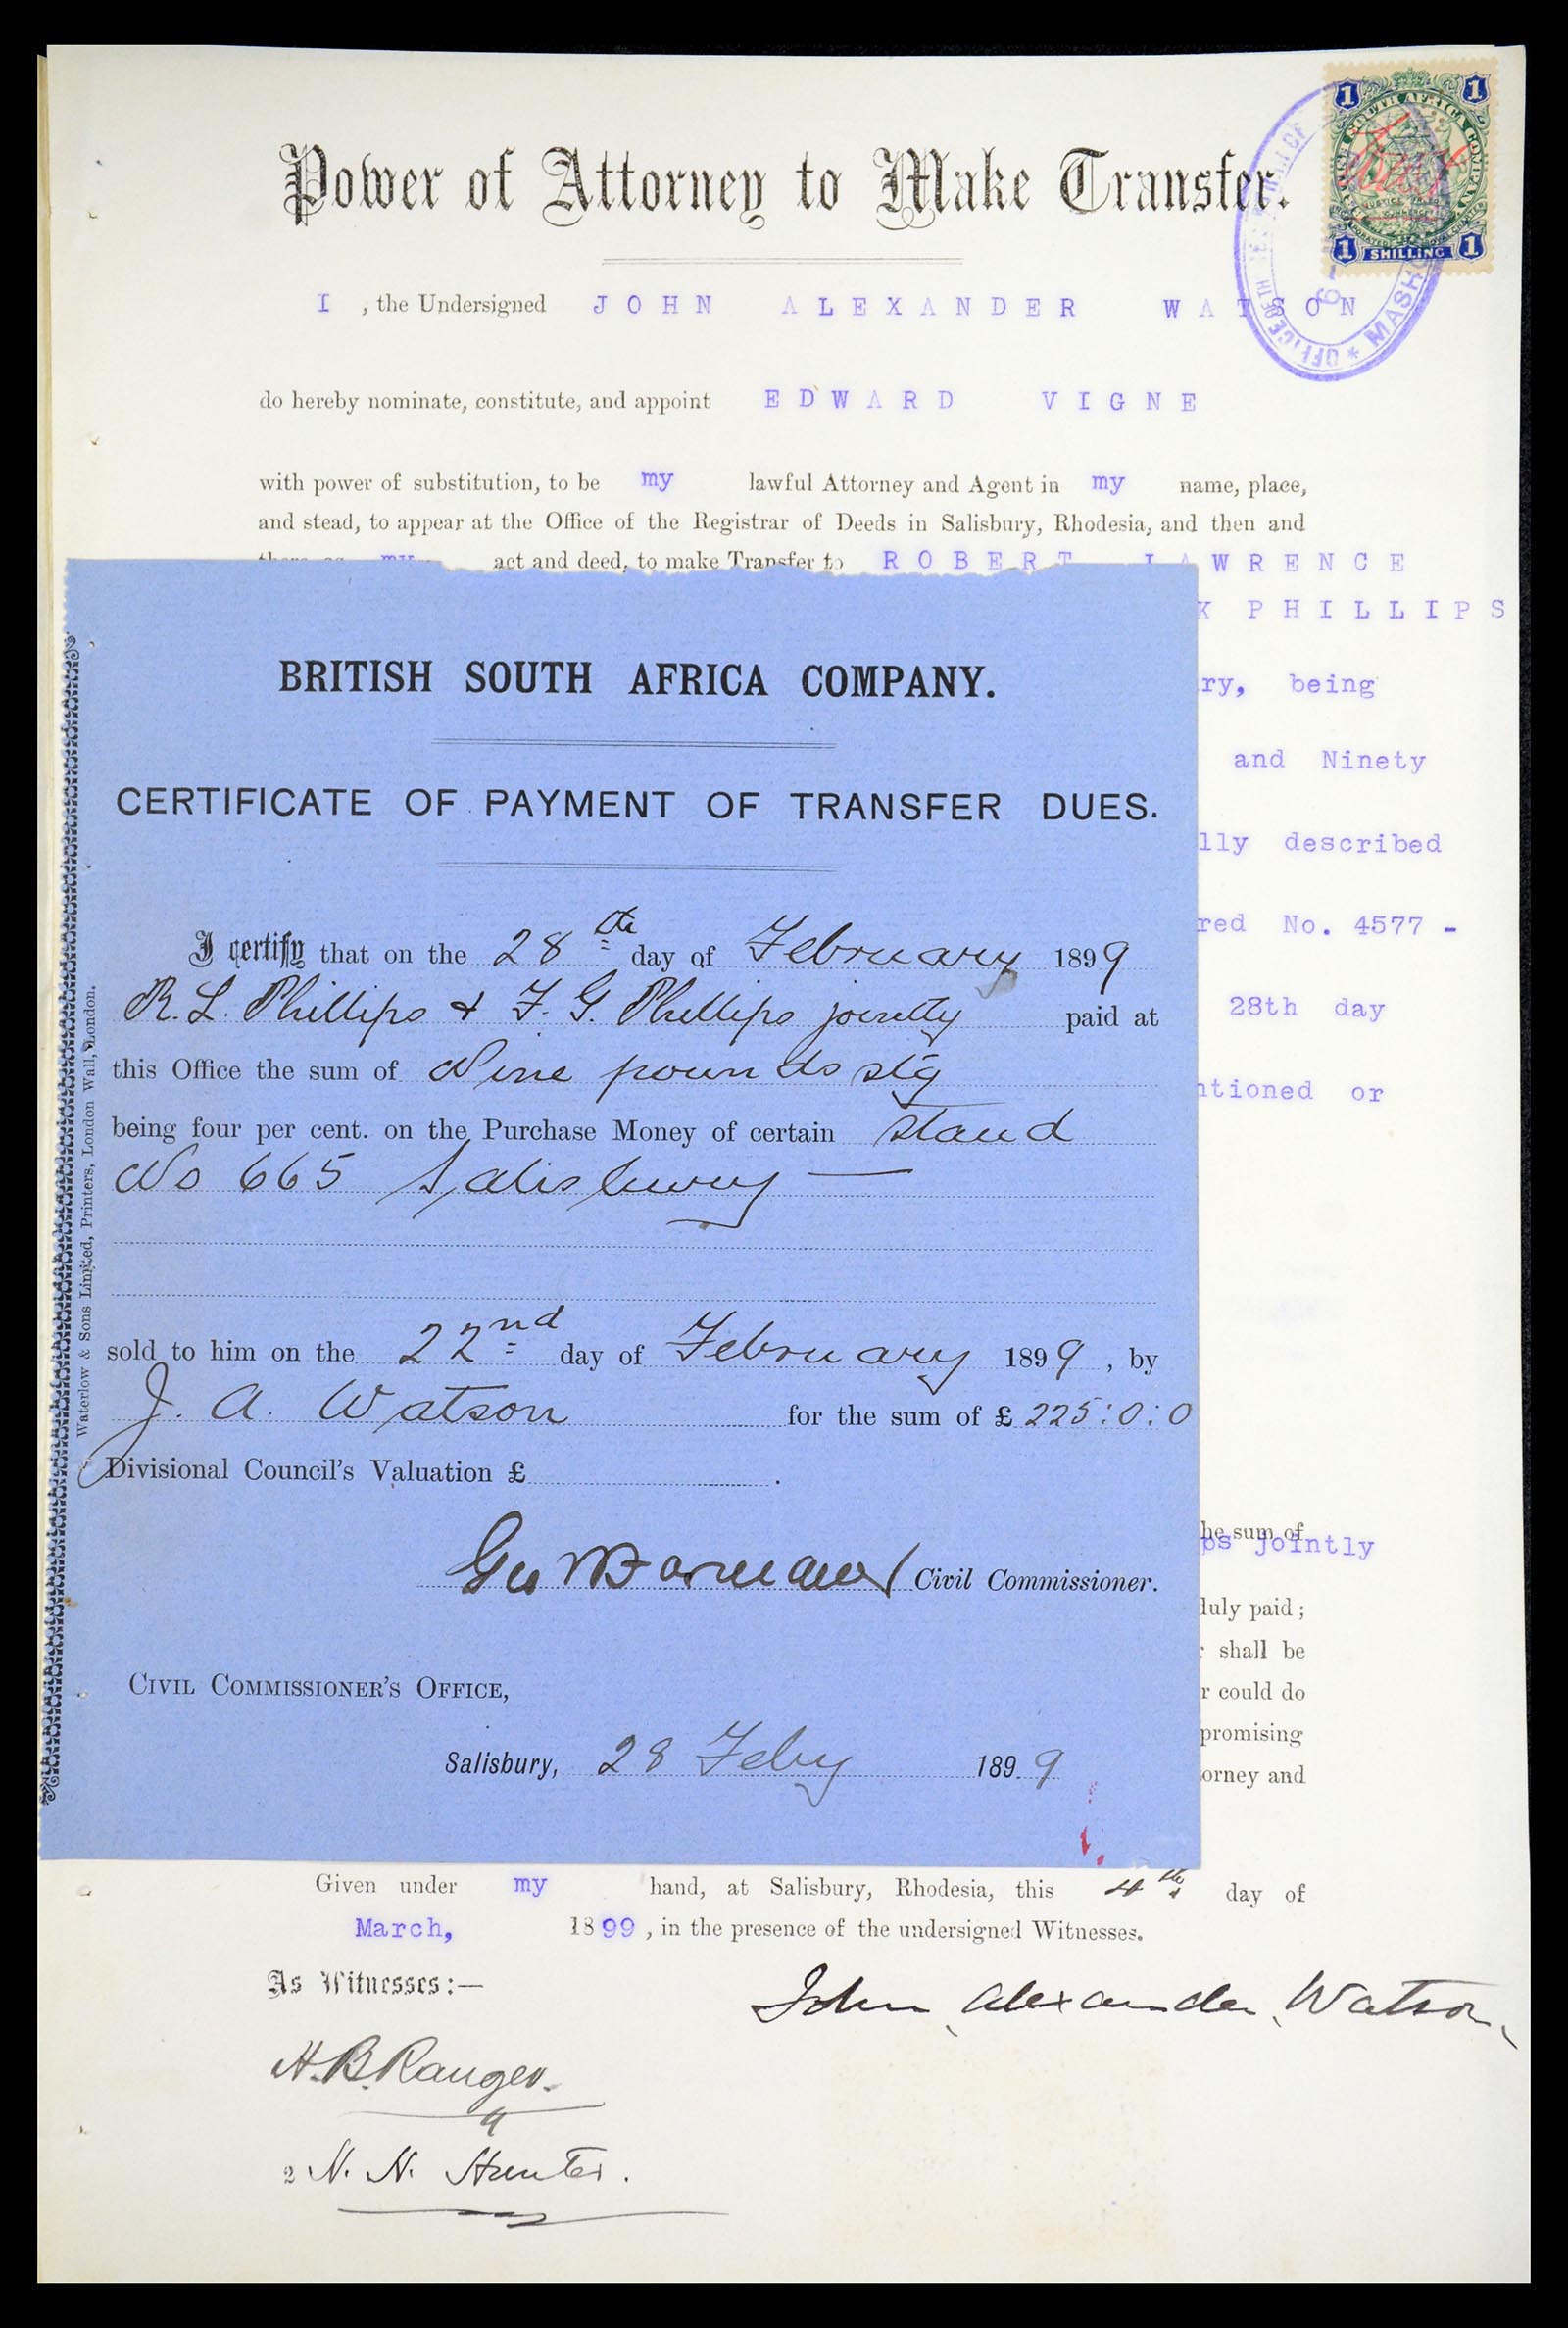 Power of Attorney to Make Transfer.
1 1
SOUTH AFRICA COMPANY
JUSTICE
COMMERCE
1 SHILLING 1
OFFICE OF TH
MASHO
I , the Undersigned JOHN ALEXANDER WATSON
do hereby nominate, constitute, and appoint EDWARD VIGNE
with power of substitution, to be my lawful Attorney and Agent in my name, place,
and stead, to appear at the Office of the Registrar of Deeds in Salisbury, Rhodesia, and then and
there as my act and deed, to make Transfer to ROBERT LAWRENCE
K PHILLIPS
ry, being
and Ninety
lly described
red No. 4577 -
28th day
ntioned or
he sum of
ps jointly
duly paid;
r shall be
r could do
promising
orney and
BRITISH SOUTH AFRICA COMPANY.
CERTIFICATE OF PAYMENT OF TRANSFER DUES.
I certify that on the 28th day of February 1899
R. L. Phillips & F. G. Phillips jointly paid at
this Office the sum of Nine pounds stg
being four per cent. on the Purchase Money of certain stand
No 665 Salisbury —
sold to him on the 22nd day of February 1899, by
J. A. Watson for the sum of £ 225:0:0
Divisional Council's Valuation £ .
Civil Commissioner.
CIVIL COMMISSIONER'S OFFICE,
Salisbury, 28 Feby 1899
Waterlow & Sons Limited, Printers, London Wall, London.
Given under my hand, at Salisbury, Rhodesia, this 4th day of
March, 1899, in the presence of the undersigned Witnesses.
As Witnesses:—
John Alexander Watson
H. B. Ranger.
2 N. N. Hunter.